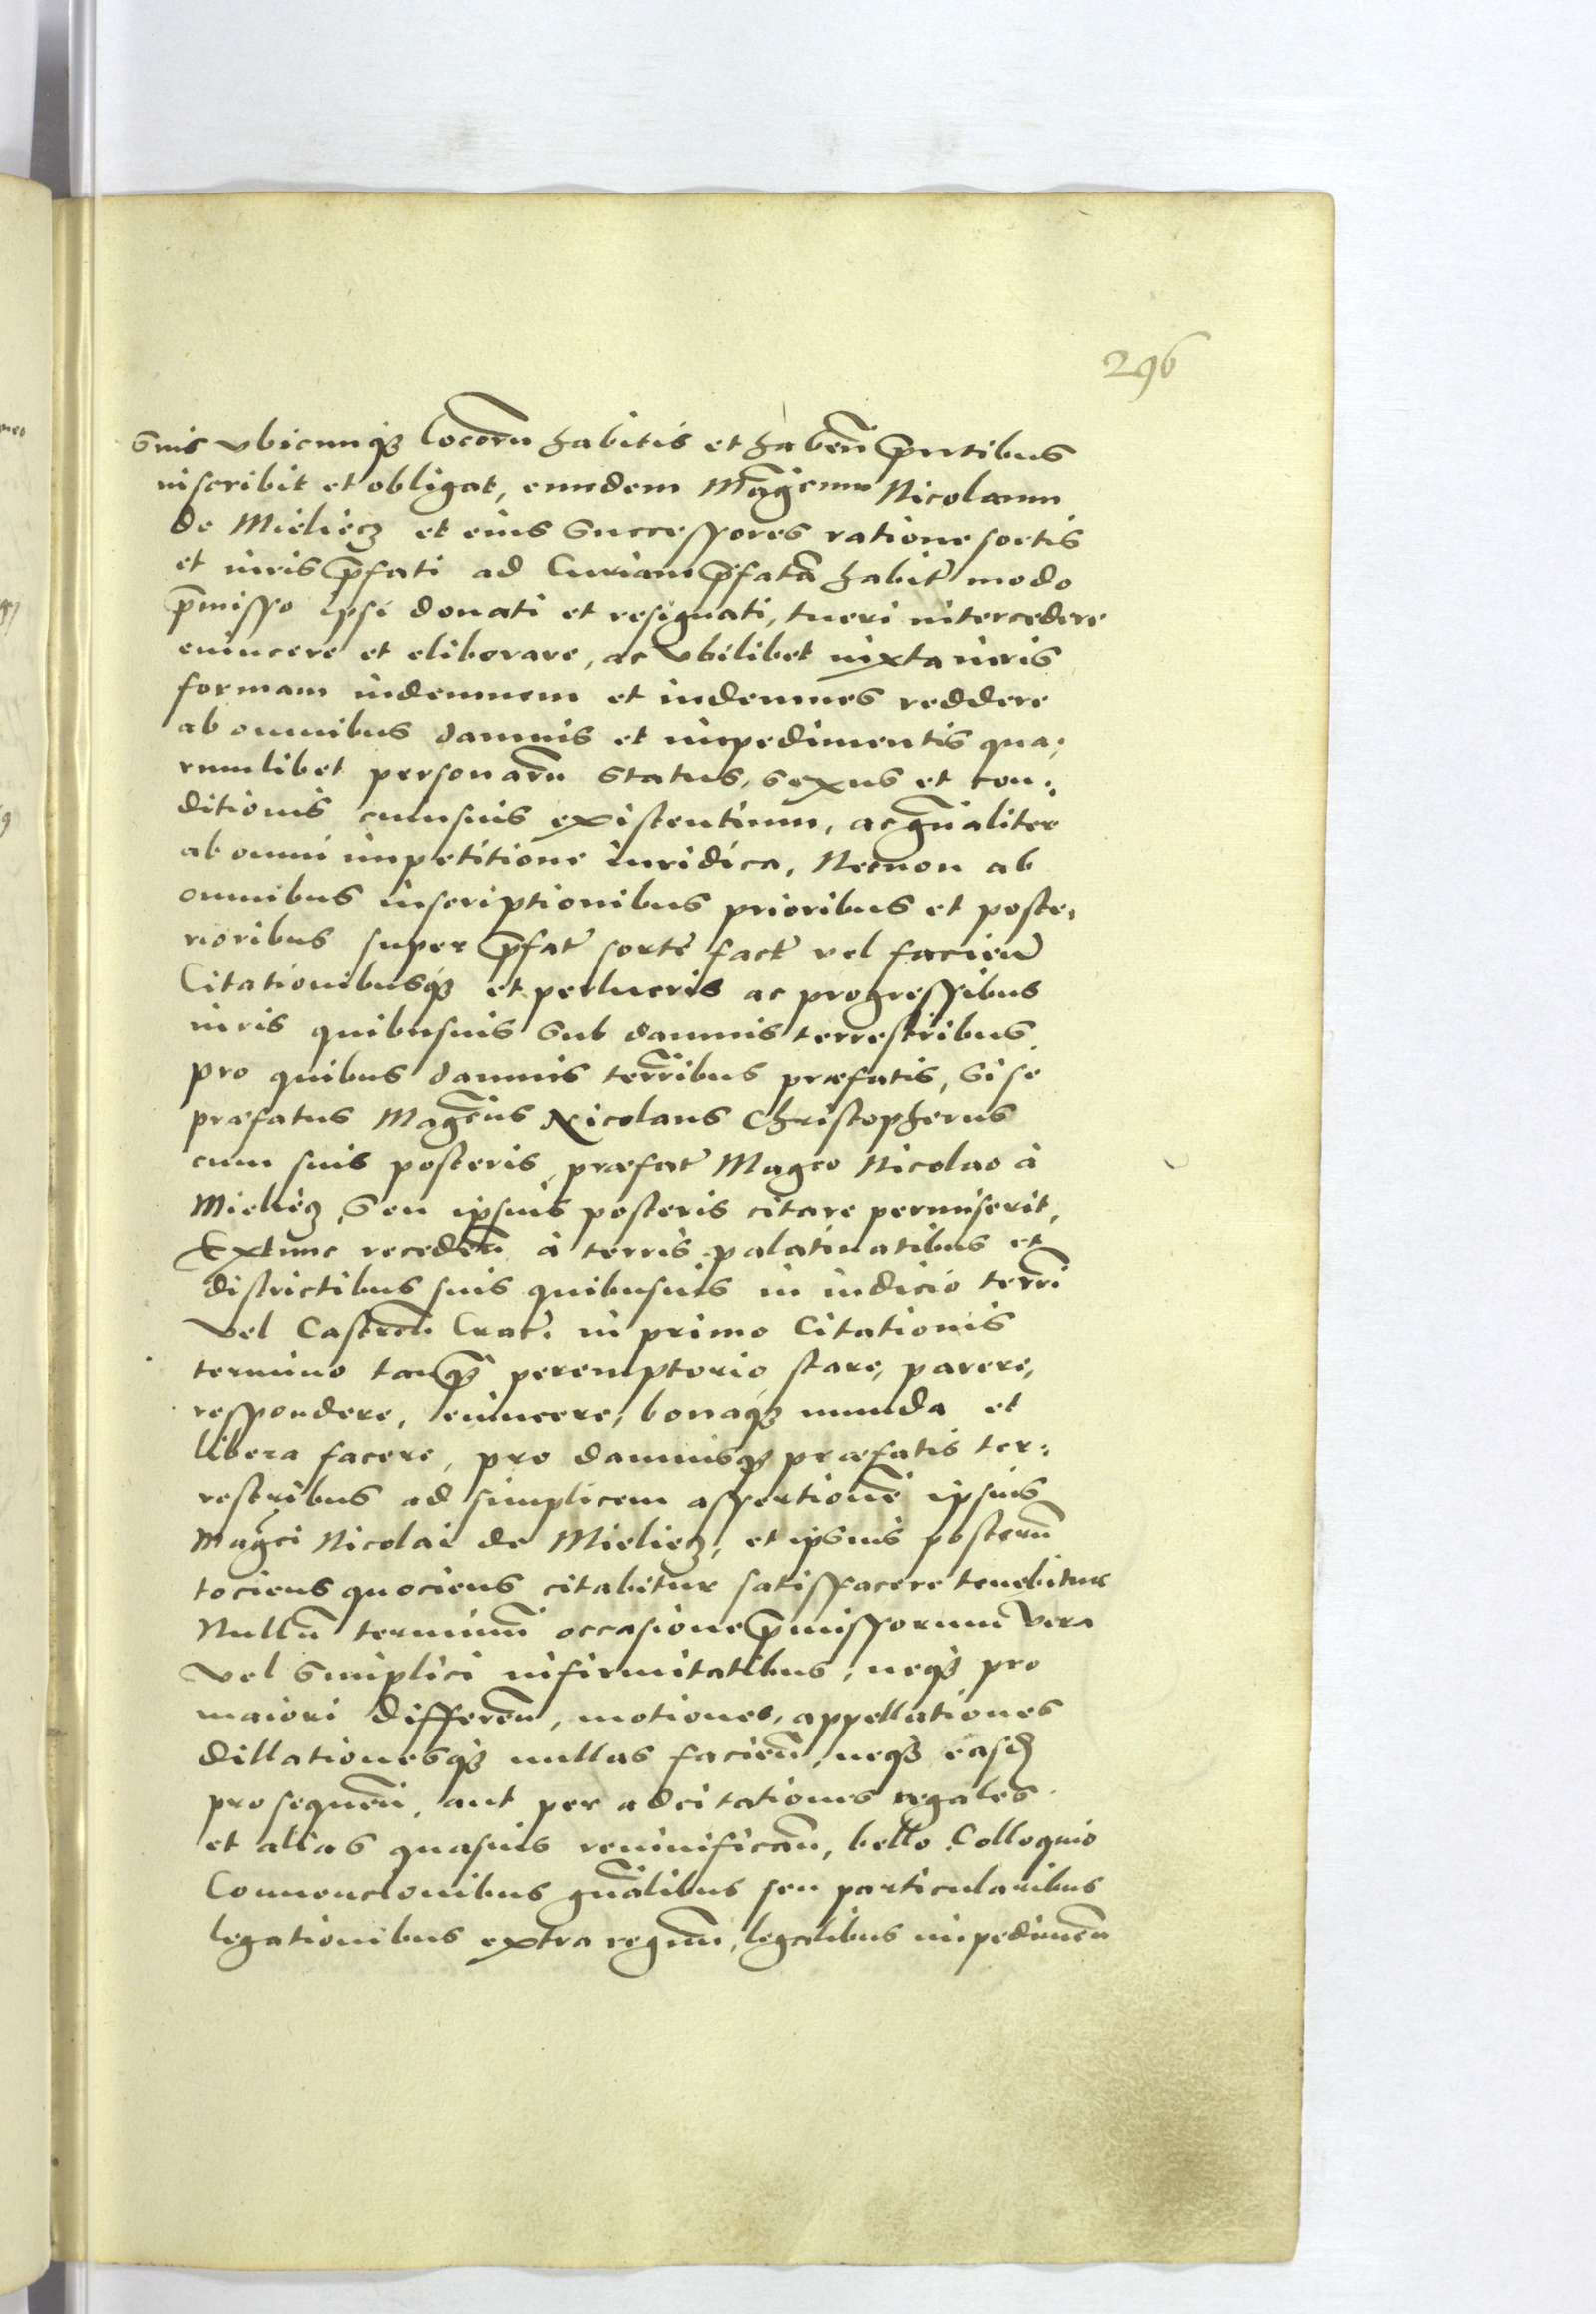 296
suis vbicunq3 locoru habitis et haben prntibus
inscribit et obligat, eundem Magcum Nicolaum
de Mieliecz et eius Successores ratione sortis
et iuris prfati ad Curiam prfata habit modo
prmisso ipsi donati et resignati, tueri intercedere
euincere et eliberare, ac vbilibet iuxta iuris
formam indemnem et indemnes reddere
ab omnibus damnis et impedimentis qua:
rumlibet personaru status, sexus et con:
ditionis cuiusuis existentium, ac gnaliter
ab omni impetitione iuridica, Necnon ab
omnibus inscriptionibus prioribus et poste:
rioribus super prfat sorte fact vel facien
Citationibusq3 et perlucris ac progressibus
iuris quibusuis Sub damnis terrestribus
pro quibus damnis terribus præfatis, Si se
præfatus Magcus Nicolaus Christopherus
cum suis posteris, præfat Magco Nicolao à
Mieliecz seu ipsius posteris citare permiserit,
Extunc receden à terris palatinatibus et
districtibus suis quibusuis in iudicio terri
vel Castren Crac: in primo Citationis
termino tanq3 peremptorio, stare, parere,
respondere, euincere, bonaq3 munda et
libera facere, pro damnisq3 præfatis ter:
restribus ad simplicem assertione ipsius
Magci Nicolai de Mieliecz, et ipsius posteru
tociens quociens citabitur satisfacere tenebitur
Nullu terminu occasione prmissorum vera
vel simplici infirmitatibus, neq3 pro
maiori differen, motiones, appellationes
dillationesq3 nullas facien, neq3 easd
prosequen, aut per adcitationes regales
et alias quasuis reuiuifican, bello Colloquio
Conuencionibus gnalibus seu particularibus
legationibus extra regnu, legalibus impedimen